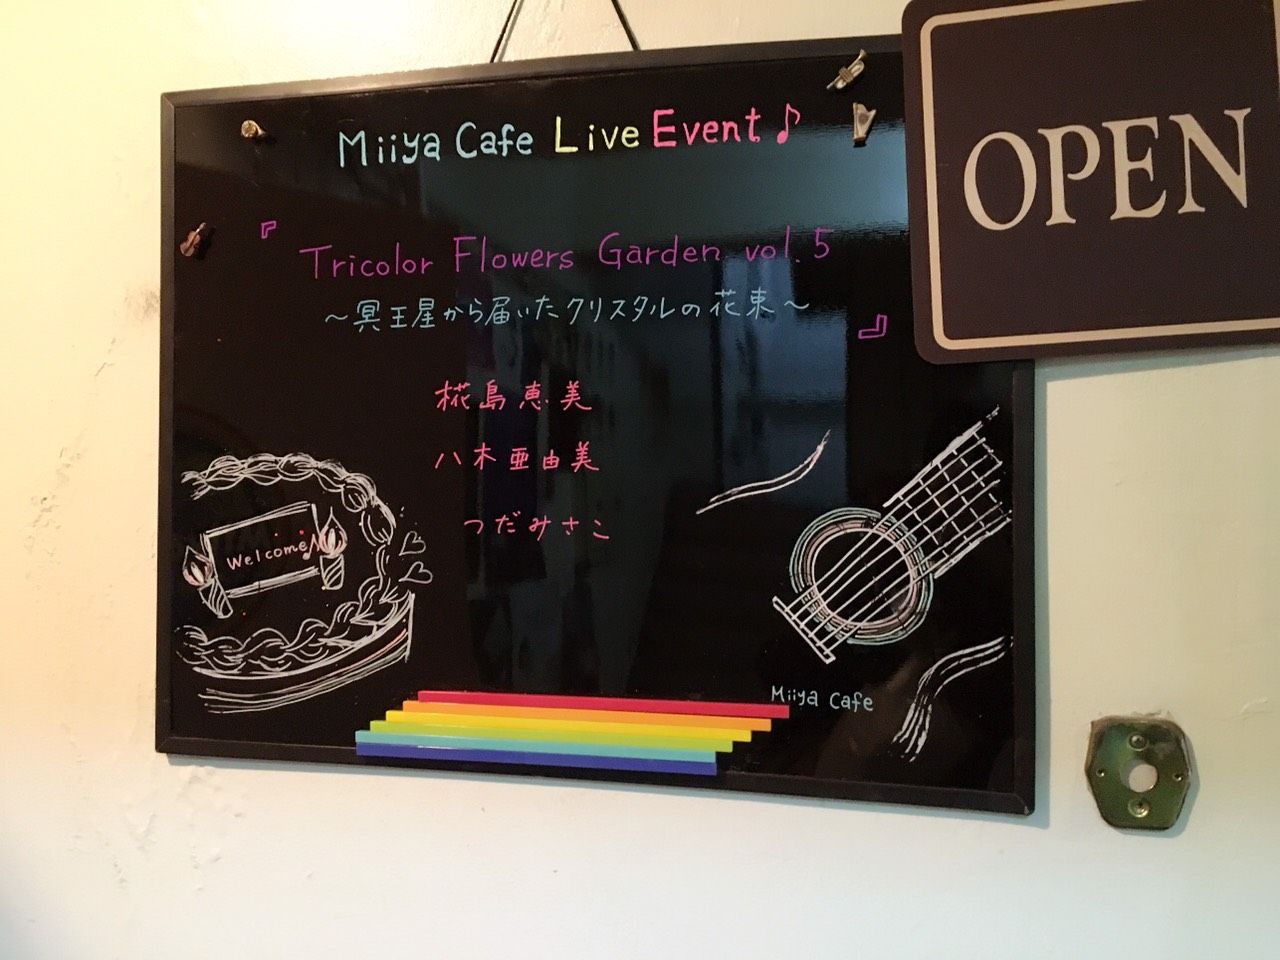 Miiya Cafe Live Event♪
OPEN
『Tricolor Flowers Garden vol.5
～冥王星から届いたクリスタルの花束～』
椛島恵美
八木亜由美
つだみさこ
Welcome♪
Miiya Cafe